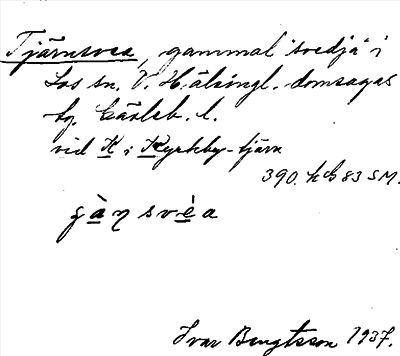 Tjärnsvea, gammal "svedja" i
Los sn. V. Hälsingl. domsagas
tg. Gävleb. l.
vid K i Kyrkby-tjärn
390. h b 83 SM.
g à η s v è a
Ivar Bengtsson 1937.